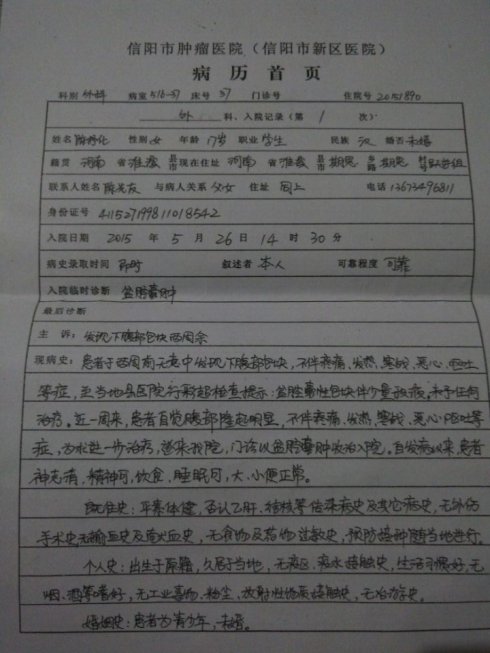 信阳市肿瘤医院（信阳市新区医院）
病历首页
科别 外科 病室 516-37 床号 37 门诊号 住院号 2051890
外 科、入院记录（第 1 次）
姓名 性别 女 年龄 17岁 职业 学生 民族 汉 婚否 未婚
籍贯 河南 省 淮滨 县市 现在住址 河南 省 淮滨 县市 期思 乡路 期思 村号
联系人姓名 与病人关系 父女 住址 同上 电话 13673496811
身份证号 411527199811018542
入院日期 2015 年 5 月 26 日 14 时 30 分
病史录取时间 即时 叙述者 本人 可靠程度 可靠
入院临时诊断 盆腔囊肿
最后诊断
主 诉：发现下腹部包块两周余
现病史：患者于两周前无意中发现下腹部包块，不伴疼痛、发热、寒战、恶心、呕吐
等症，至当地县医院行彩超检查提示：盆腔囊性包块伴少量积液，未予任何
治疗。近一周来，患者自觉腹部隆起明显，不伴疼痛、发热、寒战、恶心、呕吐等
症，为求进一步治疗，遂来我院，门诊以盆腔囊肿收治入院。自发病以来，患者
神志清，精神可，饮食，睡眠可，大、小便正常。
既往史：平素体健，否认乙肝、结核等传染病史及其它病史，无外伤
手术史无输血史及献血史，无食物及药物过敏史，预防接种随当地进行。
个人史：出生于原籍，久居于当地，无疫区、疫水接触史，生活习惯好，无
烟、酒等嗜好，无工业毒物、粉尘、放射性物质接触史，无冶游史。
婚姻史：患者为青少年，未婚。